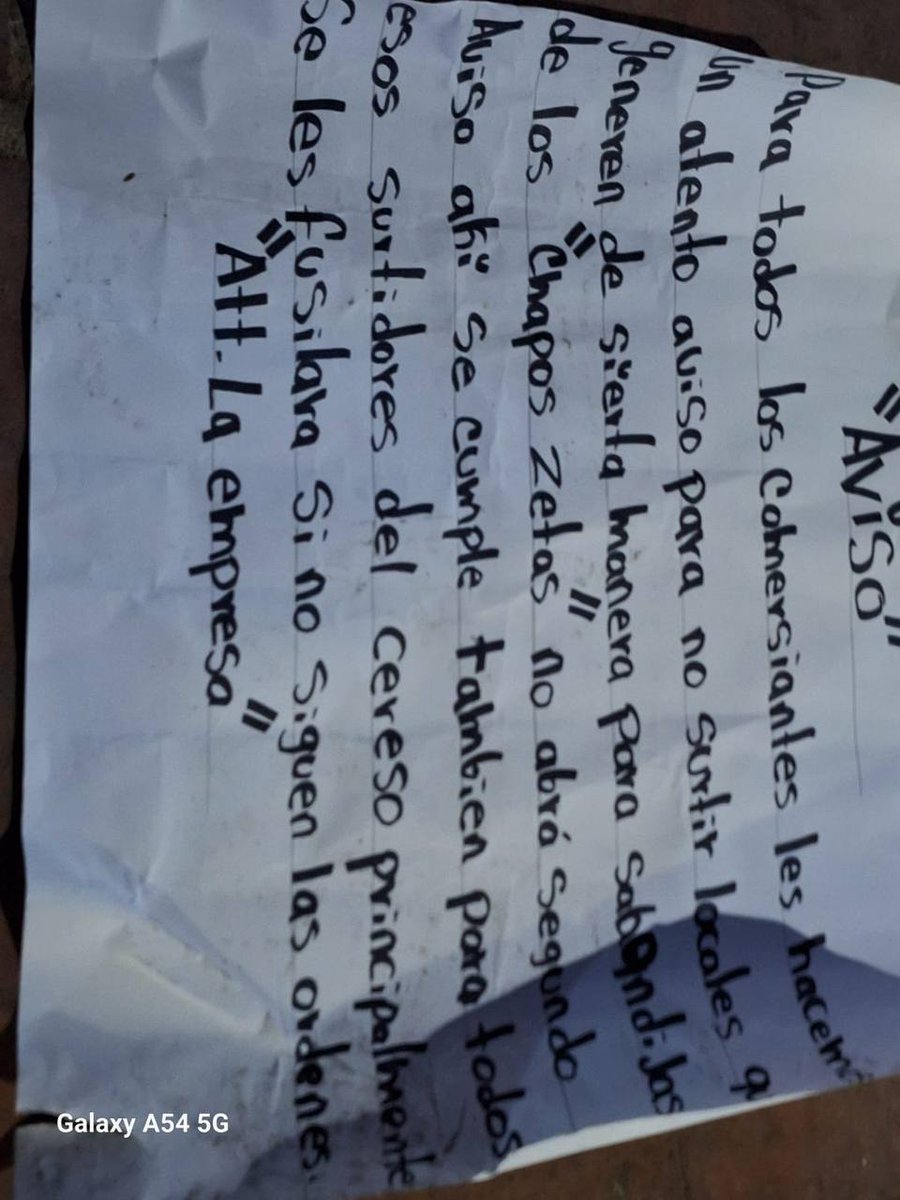 "AVISO"
Para todos los comersiantes les hacem
un atento aviso para no surtir locales q
generen de sierta manera para sabandijas
de los "Chapos Zetas" no abrá segundo
Aviso aki se cumple tambien para todos
esos surtidores del cereso principalmente
Se les fusilara si no siguen las ordenes.
"Att. La empresa"
Galaxy A54 5G